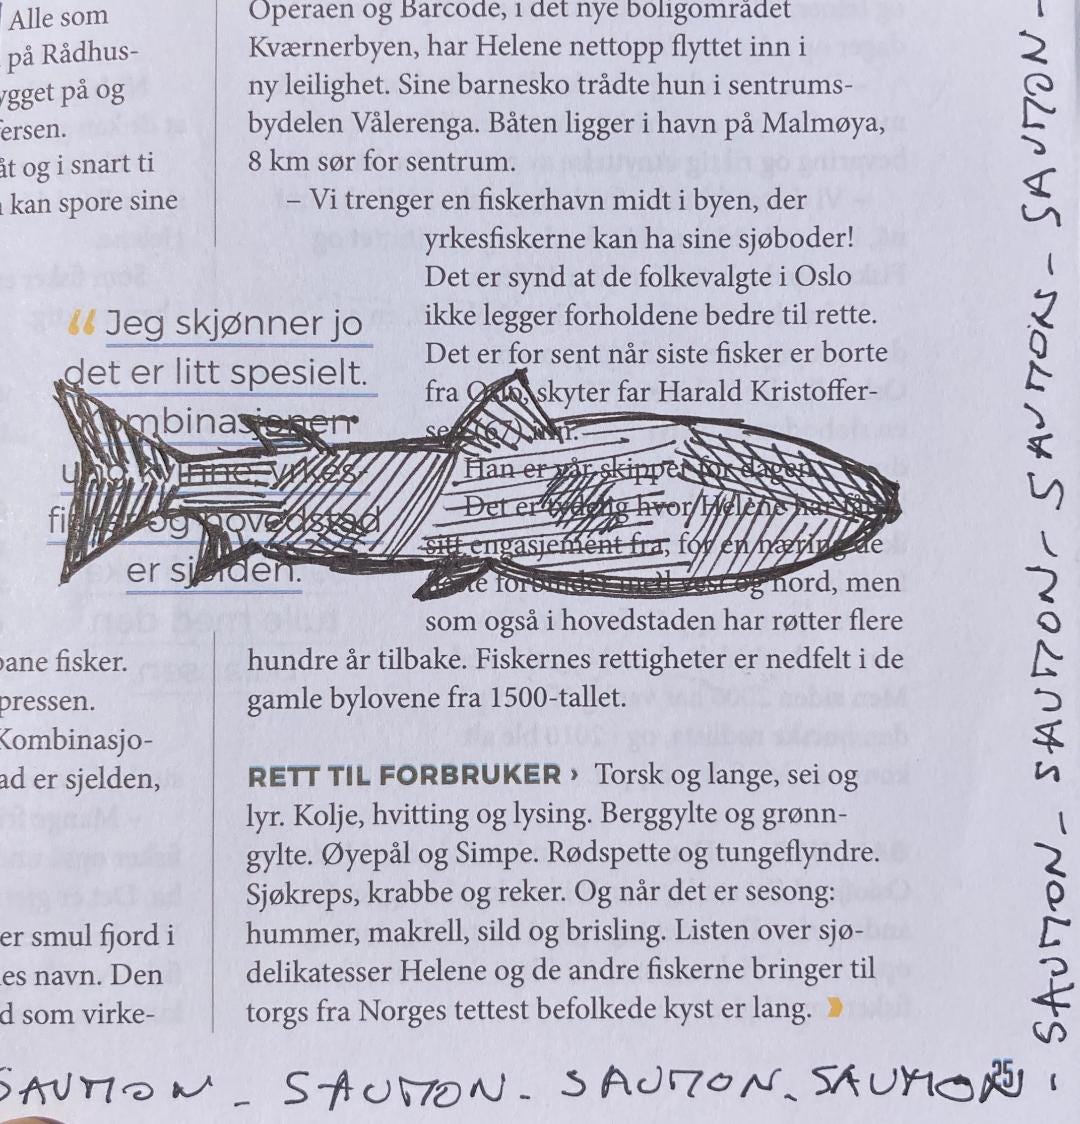 Alle som
på Rådhus-
ygget på og
ersen.
åt og i snart ti
kan spore sine
pane fisker.
pressen.
Kombinasjo-
ad er sjelden,
er smul fjord i
es navn. Den
d som virke-
“Jeg skjønner jo
det er litt spesielt.
Kombinasjonen
ung kvinne, yrkes-
fisker og hovedstad
er sjelden.
Operaen og Barcode, i det nye boligområdet
Kværnerbyen, har Helene nettopp flyttet inn i
ny leilighet. Sine barnesko trådte hun i sentrums-
bydelen Vålerenga. Båten ligger i havn på Malmøya,
8 km sør for sentrum.
– Vi trenger en fiskerhavn midt i byen, der
yrkesfiskerne kan ha sine sjøboder!
Det er synd at de folkevalgte i Oslo
ikke legger forholdene bedre til rette.
Det er for sent når siste fisker er borte
fra Oslo, skyter far Harald Kristoffer-
sen (67) inn.
Han er vår skipper for dagen.
Det er tydelig hvor Helene har fått
sitt engasjement fra, for en næring de
forbinder med vest og nord, men
som også i hovedstaden har røtter flere
hundre år tilbake. Fiskernes rettigheter er nedfelt i de
gamle bylovene fra 1500-tallet.
RETT TIL FORBRUKER › Torsk og lange, sei og
lyr. Kolje, hvitting og lysing. Berggylte og grønn-
gylte. Øyepål og Simpe. Rødspette og tungeflyndre.
Sjøkreps, krabbe og reker. Og når det er sesong;
hummer, makrell, sild og brisling. Listen over sjø-
delikatesser Helene og de andre fiskerne bringer til
torgs fra Norges tettest befolkede kyst er lang. ›
SAUMON - SAUMON - SAUMON - SAUMON -
SAUMON - SAUMON - SAUMON - SAUMON -
25